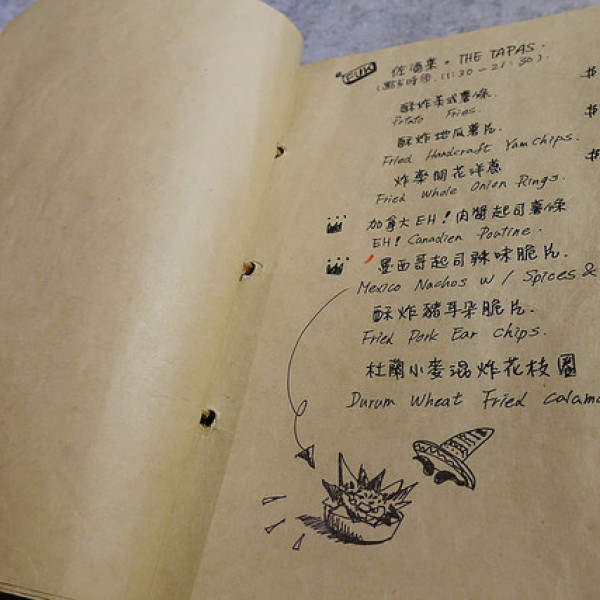 FUK 佐酒菜 • THE TAPAS.
(點餐時間. 11:30 - 21:30).
酥炸美式薯條. $
Potato Fries.
酥炸地瓜薯片. $
Fried Handcraft Yam chips.
炸整開花洋蔥 $
Fried Whole Onion Rings.
加拿大EH!肉醬起司薯條
EH! Canadien Poutine.
墨西哥起司辣味脆片.
Mexico Nachos w / Spices &
酥炸豬耳朵脆片.
Fried Pork Ear chips.
杜蘭小麥混炸花枝圈
Durum Wheat Fried calama